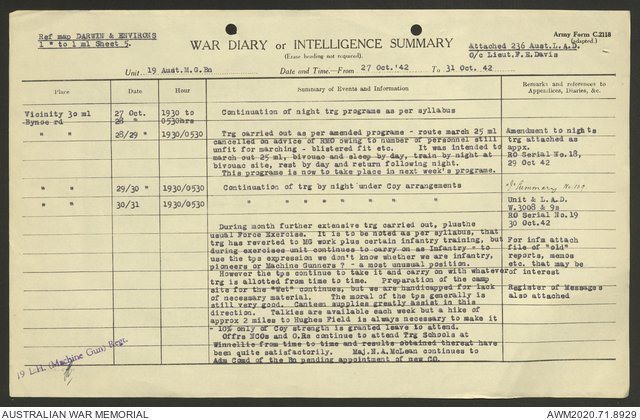 Ref map DARWIN & ENVIRONS
1 " to 1 ml Sheet 5.
WAR DIARY or INTELLIGENCE SUMMARY
(Erase heading not required).
Army Form C.2118
(adapted.)
Attached 236 Aust.L.A.D.
O/c Lieut.F.E.Davis
Unit 19 Aust.M.G.Bn Date and Time—From 27 Oct.'42 To 31 Oct. 42
Place Date Hour Summary of Events and Information Remarks and references to Appendices, Diaries, &c.
Vicinity 30 ml 27 Oct. 1930 to Continuation of night trg programe as per syllabus
Bynoe rd 28 " 0530hrs
" " 28/29 " 1930/0530 Trg carried out as per amended programe - route march 25 ml Amendment to nights
cancelled on advice of RMO owing to number of personnel still trg attached as
unfit for marching - blistered fit etc. It was intended to appx.
march out 25 ml, bivouac and sleep by day, train by night at RO Serial No.18,
bivouac site, rest by day and return following night. 29 Oct 42
This programe is now to take place in next week's programe.
" " 29/30 " 1930/0530 Continuation of trg by night under Coy arrangements Summary No.
" " 30/31 1930/0530 " " " " " " " Unit & L.A.D.
W.3008 & 9s
RO Serial No.19
30 Oct.42
During month further extensive trg carried out, plusthe
usual Force Exercise. It is to be noted as per syllabus, that
trg has reverted to MG work plus certain infantry training, but For infm attach
during exercises unit continues to carry on as Infantry - to file of "old"
use the tps expression we don't know whether we are infantry, reports, memos
pioneers or Machine Gunners ? - a most unusual position. etc. that may be
However the tps continue to take it and carry on with whatever of interest
trg is allotted from time to time. Preparation of the camp
site for the "Wet" continues, but we are handicapped for lack Register of Messages
of necessary material. The moral of the tps generally is also attached
still very good. Canteen supplies greatly assist in this
direction. Talkies are available each week but a hike of
approx 2 miles to Hughes Field is always necessary to make it
- 10% only of Coy strength is granted leave to attend.
Offrs NCOs and O.Rs continue to attend Trg Schools at
Winnellie from time to time and results obtained thereat have
been quite satisfactorily. Maj.N.A.McLean continues to
Adm Comd of the Bn pending appointment of new CO.
19 L.H. (Machine Gun) Regt.
AUSTRALIAN WAR MEMORIAL
AWM2020.71.8929